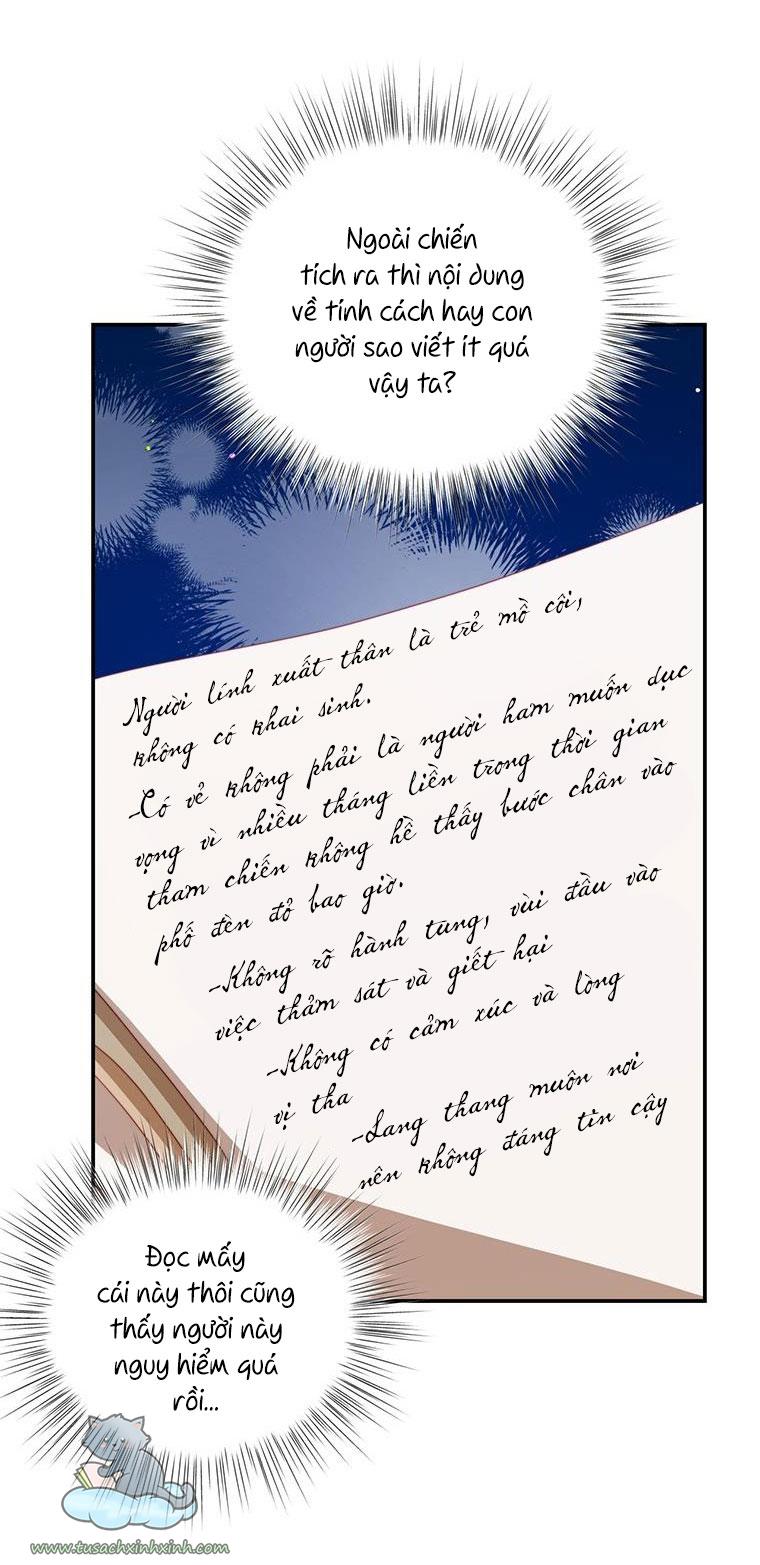 Ngoài chiến
tích ra thì nội dung
về tính cách hay con
người sao viết ít quá
vậy ta?
Người lính xuất thân là trẻ mồ côi,
không có khai sinh.
-Có vẻ không phải là người ham muốn dục
vọng vì nhiều tháng liền trong thời gian
tham chiến không hề thấy bước chân vào
phố đèn đỏ bao giờ.
-Không rõ hành tung, vùi đầu vào
việc thảm sát và giết hại
-Không có cảm xúc và lòng
vị tha
-Lang thang muôn nơi
nên không đáng tin cậy
Đọc mấy
cái này thôi cũng
thấy người này
nguy hiểm quá
rồi...
www.tusachxinhxinh.com